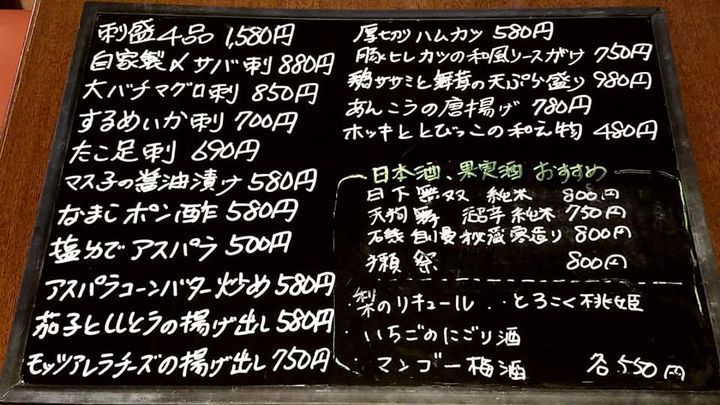 刺盛4品 1,580円
自家製〆サバ刺 880円
大バチマグロ刺 850円
するめいか刺 700円
たこ足刺 690円
マス子の醤油漬け 580円
なまこポン酢 580円
塩ゆでアスパラ 500円
アスパラコーンバター炒め 580円
茄子とししとうの揚げ出し 580円
モッツアレラチーズの揚げ出し 750円
厚切りハムカツ 580円
豚ヒレカツの和風ソースがけ 750円
鶏ササミと舞茸の天ぷら盛り 980円
あんこうの唐揚げ 780円
ホッキととびっこの和え物 480円
日本酒、果実酒 おすすめ
日下無双 純米 800円
天狗舞 旨辛純米 750円
石鎚 自慢 秘蔵寒造り 800円
獺祭 800円
・梨のリキュール ・とろこく桃姫
・いちごのにごり酒
・マンゴー梅酒 各550円